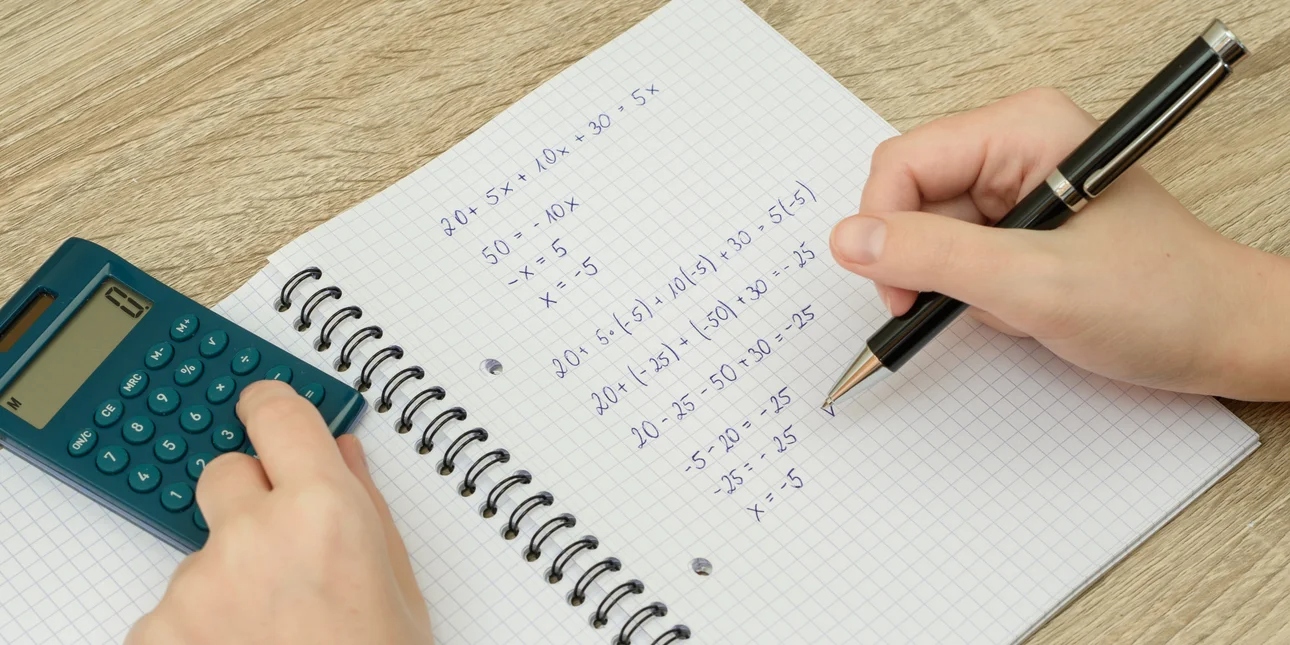 20 + 5x + 10x + 30 = 5x
50 = -10x
-x = 5
x = -5
20 + 5·(-5) + 10(-5) + 30 = 5(-5)
20 + (-25) + (-50) + 30 = -25
20 - 25 - 50 + 30 = -25
-5 - 20 = -25
-25 = -25
x = -5
M
0.
M+
M-
√
MRC
%
÷
CE
9
×
ON/C
8
6
-
7
5
3
=
4
2
1